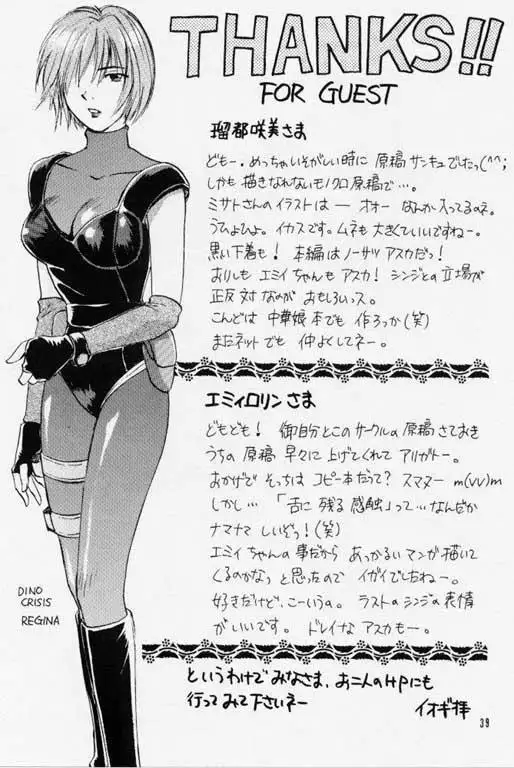 THANKS!!
FOR GUEST
瑠都咲美さま
どもー。めっちゃいそがしい時に 原稿サンキュでしたっ(^^;
しかも描きなれないモノクロ原稿で…。
ミサトさんのイラストは ― オォー なんか入ってるのネ。
うひょひょ。イカスです。ムネも大きくていいですねー。
黒い下着も! 本編はノーサツアスカだっ!
おりしも エミィちゃんもアスカ! シンジとの立場が
正反対なのが おもしろいっス。
こんどは 中華娘本でも 作ろっか(笑)
またネットでも 仲よくしてネー。
エミィロリンさま
どもども! 御自分とこのサークルの原稿さておき
うちの原稿 早々に上げてくれてアリガトー。
おかげでそっちは コピー本だって? スマヌー m(vv)m
しかし… 「舌に残る感触」って…なんだか
ナマナマしいぞっ!(笑)
エミィちゃんの事だから あっかるいマンガ描いて
くるのかなっと思ったので イガイでしたねー。
好きだけど、こーいうの。 ラストのシンジの表情
がいいです。 ドレイなアスカもー。
というわけで みなさま、お二人のHPにも
行ってみて下さいネー
イオギ拝
DINO
CRISIS
REGINA
39